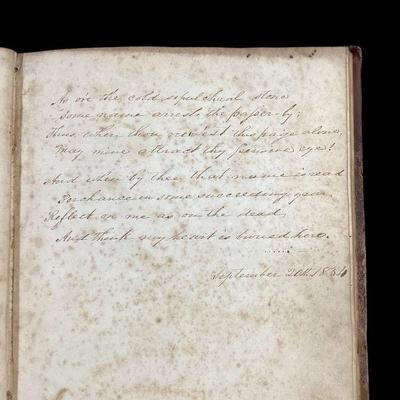 As o'er the cold sepulchral stone
Some name arrests the passer-by;
Thus, when thou viewest this page alone,
May mine attract thy pensive eye!
And when by thee that name is read
Perchance in some succeeding year,
Reflect on me as on the dead,
And think my heart is buried here.
September 20th 1834